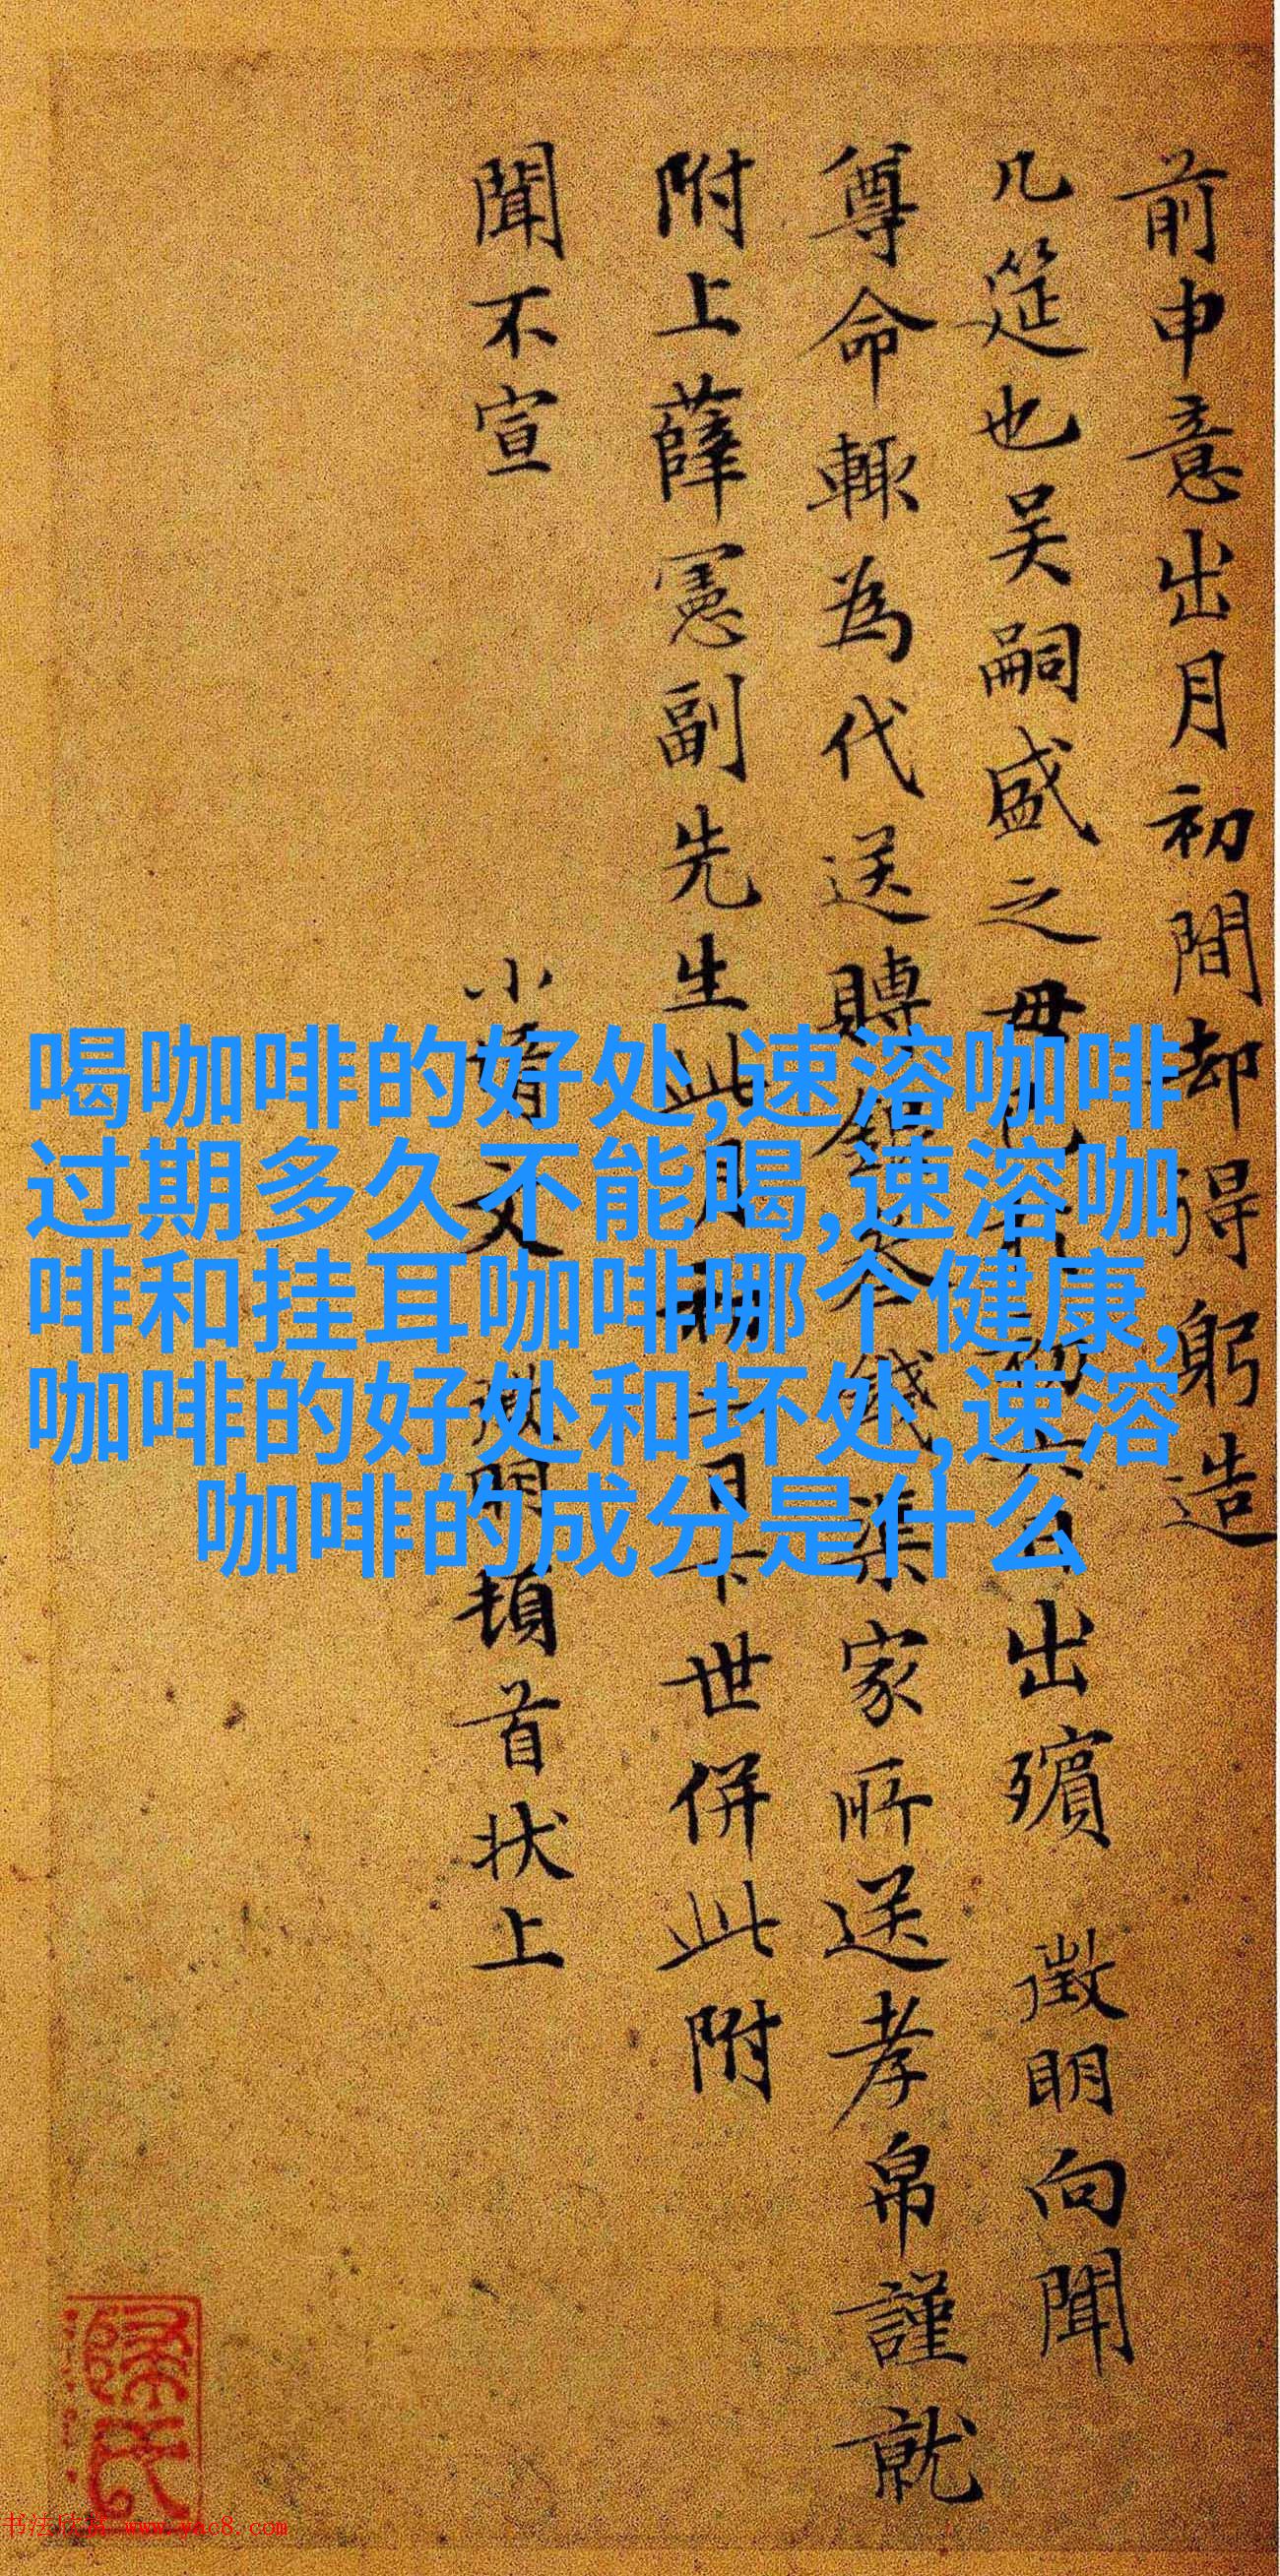 前申意出月初間却得躬造
几筵也吴嗣盛之毋 出殯 徵明向聞
尊命輒為代送賻 渠家所送孝帛謹就
附上薛憲副先生此月 世併此附
聞不宣
小 文 頓首狀上
喝咖啡的好处,速溶咖啡
过期多久不能喝,速溶咖
啡和挂耳咖啡哪个健康,
咖啡的好处和坏处,速溶
咖啡的成分是什么
书法欣赏 www.yac8.com